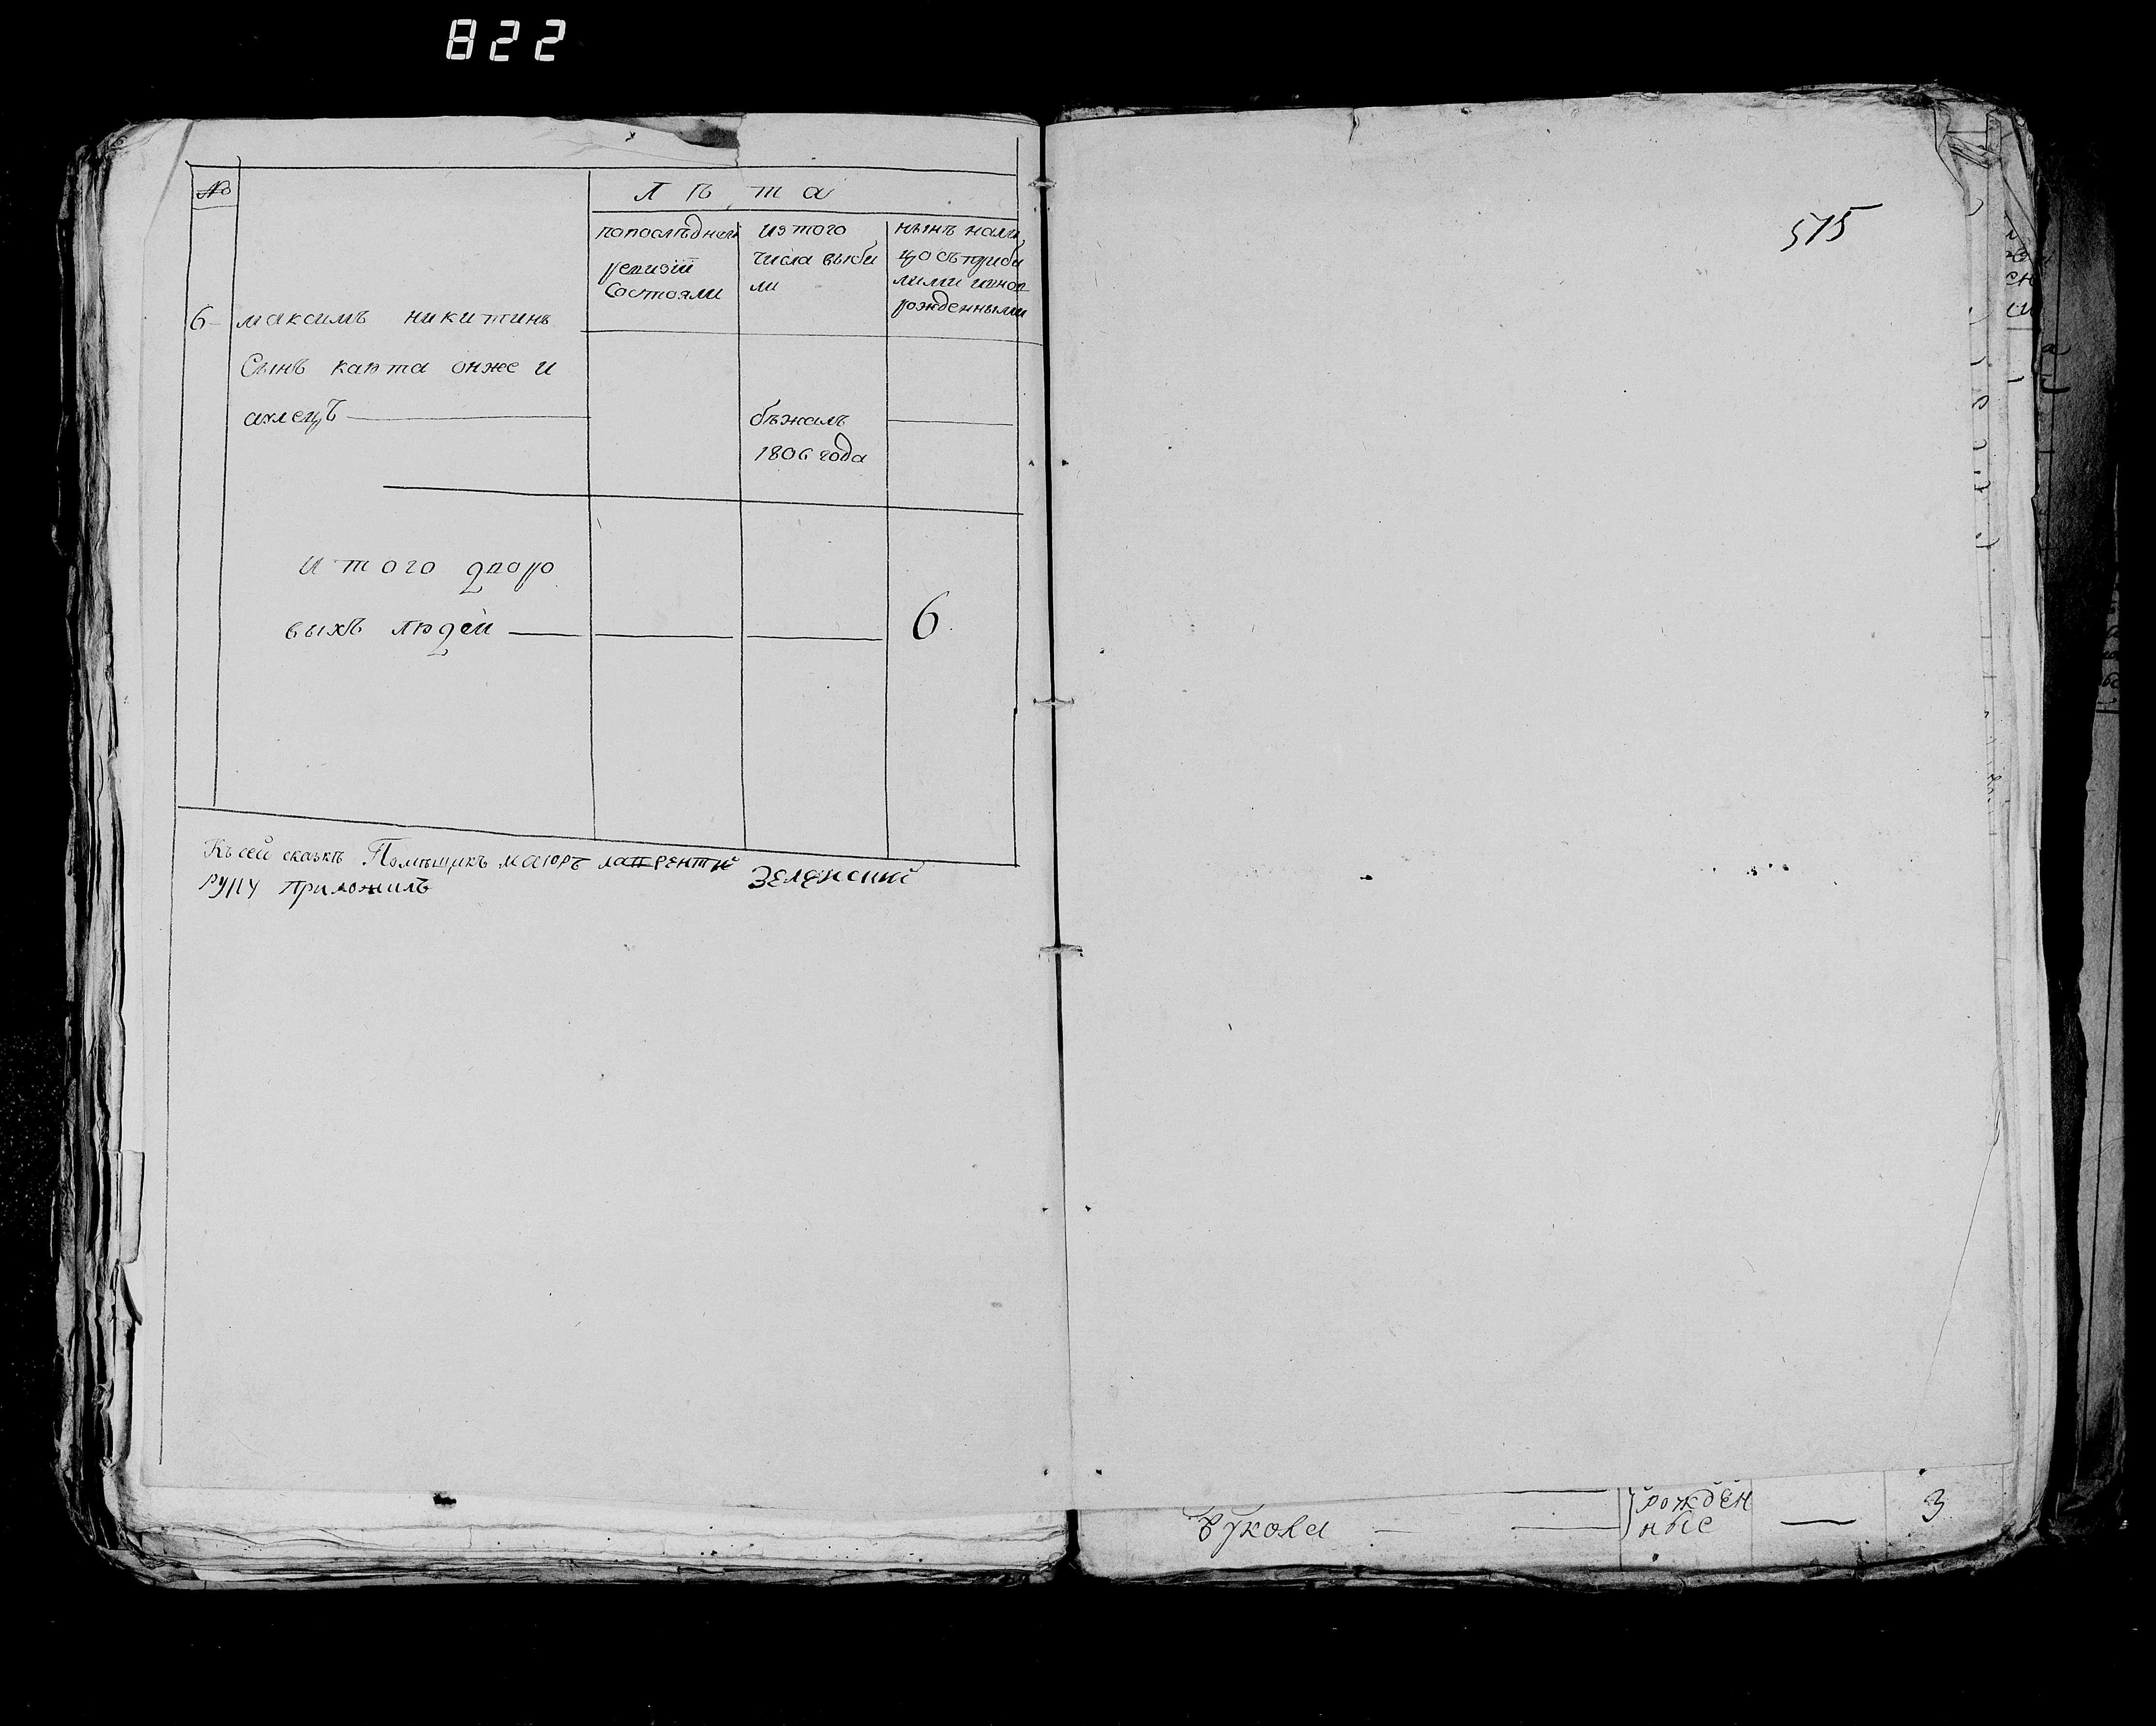 822
№
Л ѣ т а
попослѣдней ревизіи состояли
изтого числа выбыли
нынѣ налицо съ прибылыми и новорожденными
6 максимъ никитинъ
Сынъ капта онже и
ахлецъ
бѣжалъ
1806 года
итого дворо
выхъ людей 6.
Къ сей скаскѣ Помѣщикъ маіоръ лаврентій Зеленский
руку приложилъ
515
рожден
ные 3